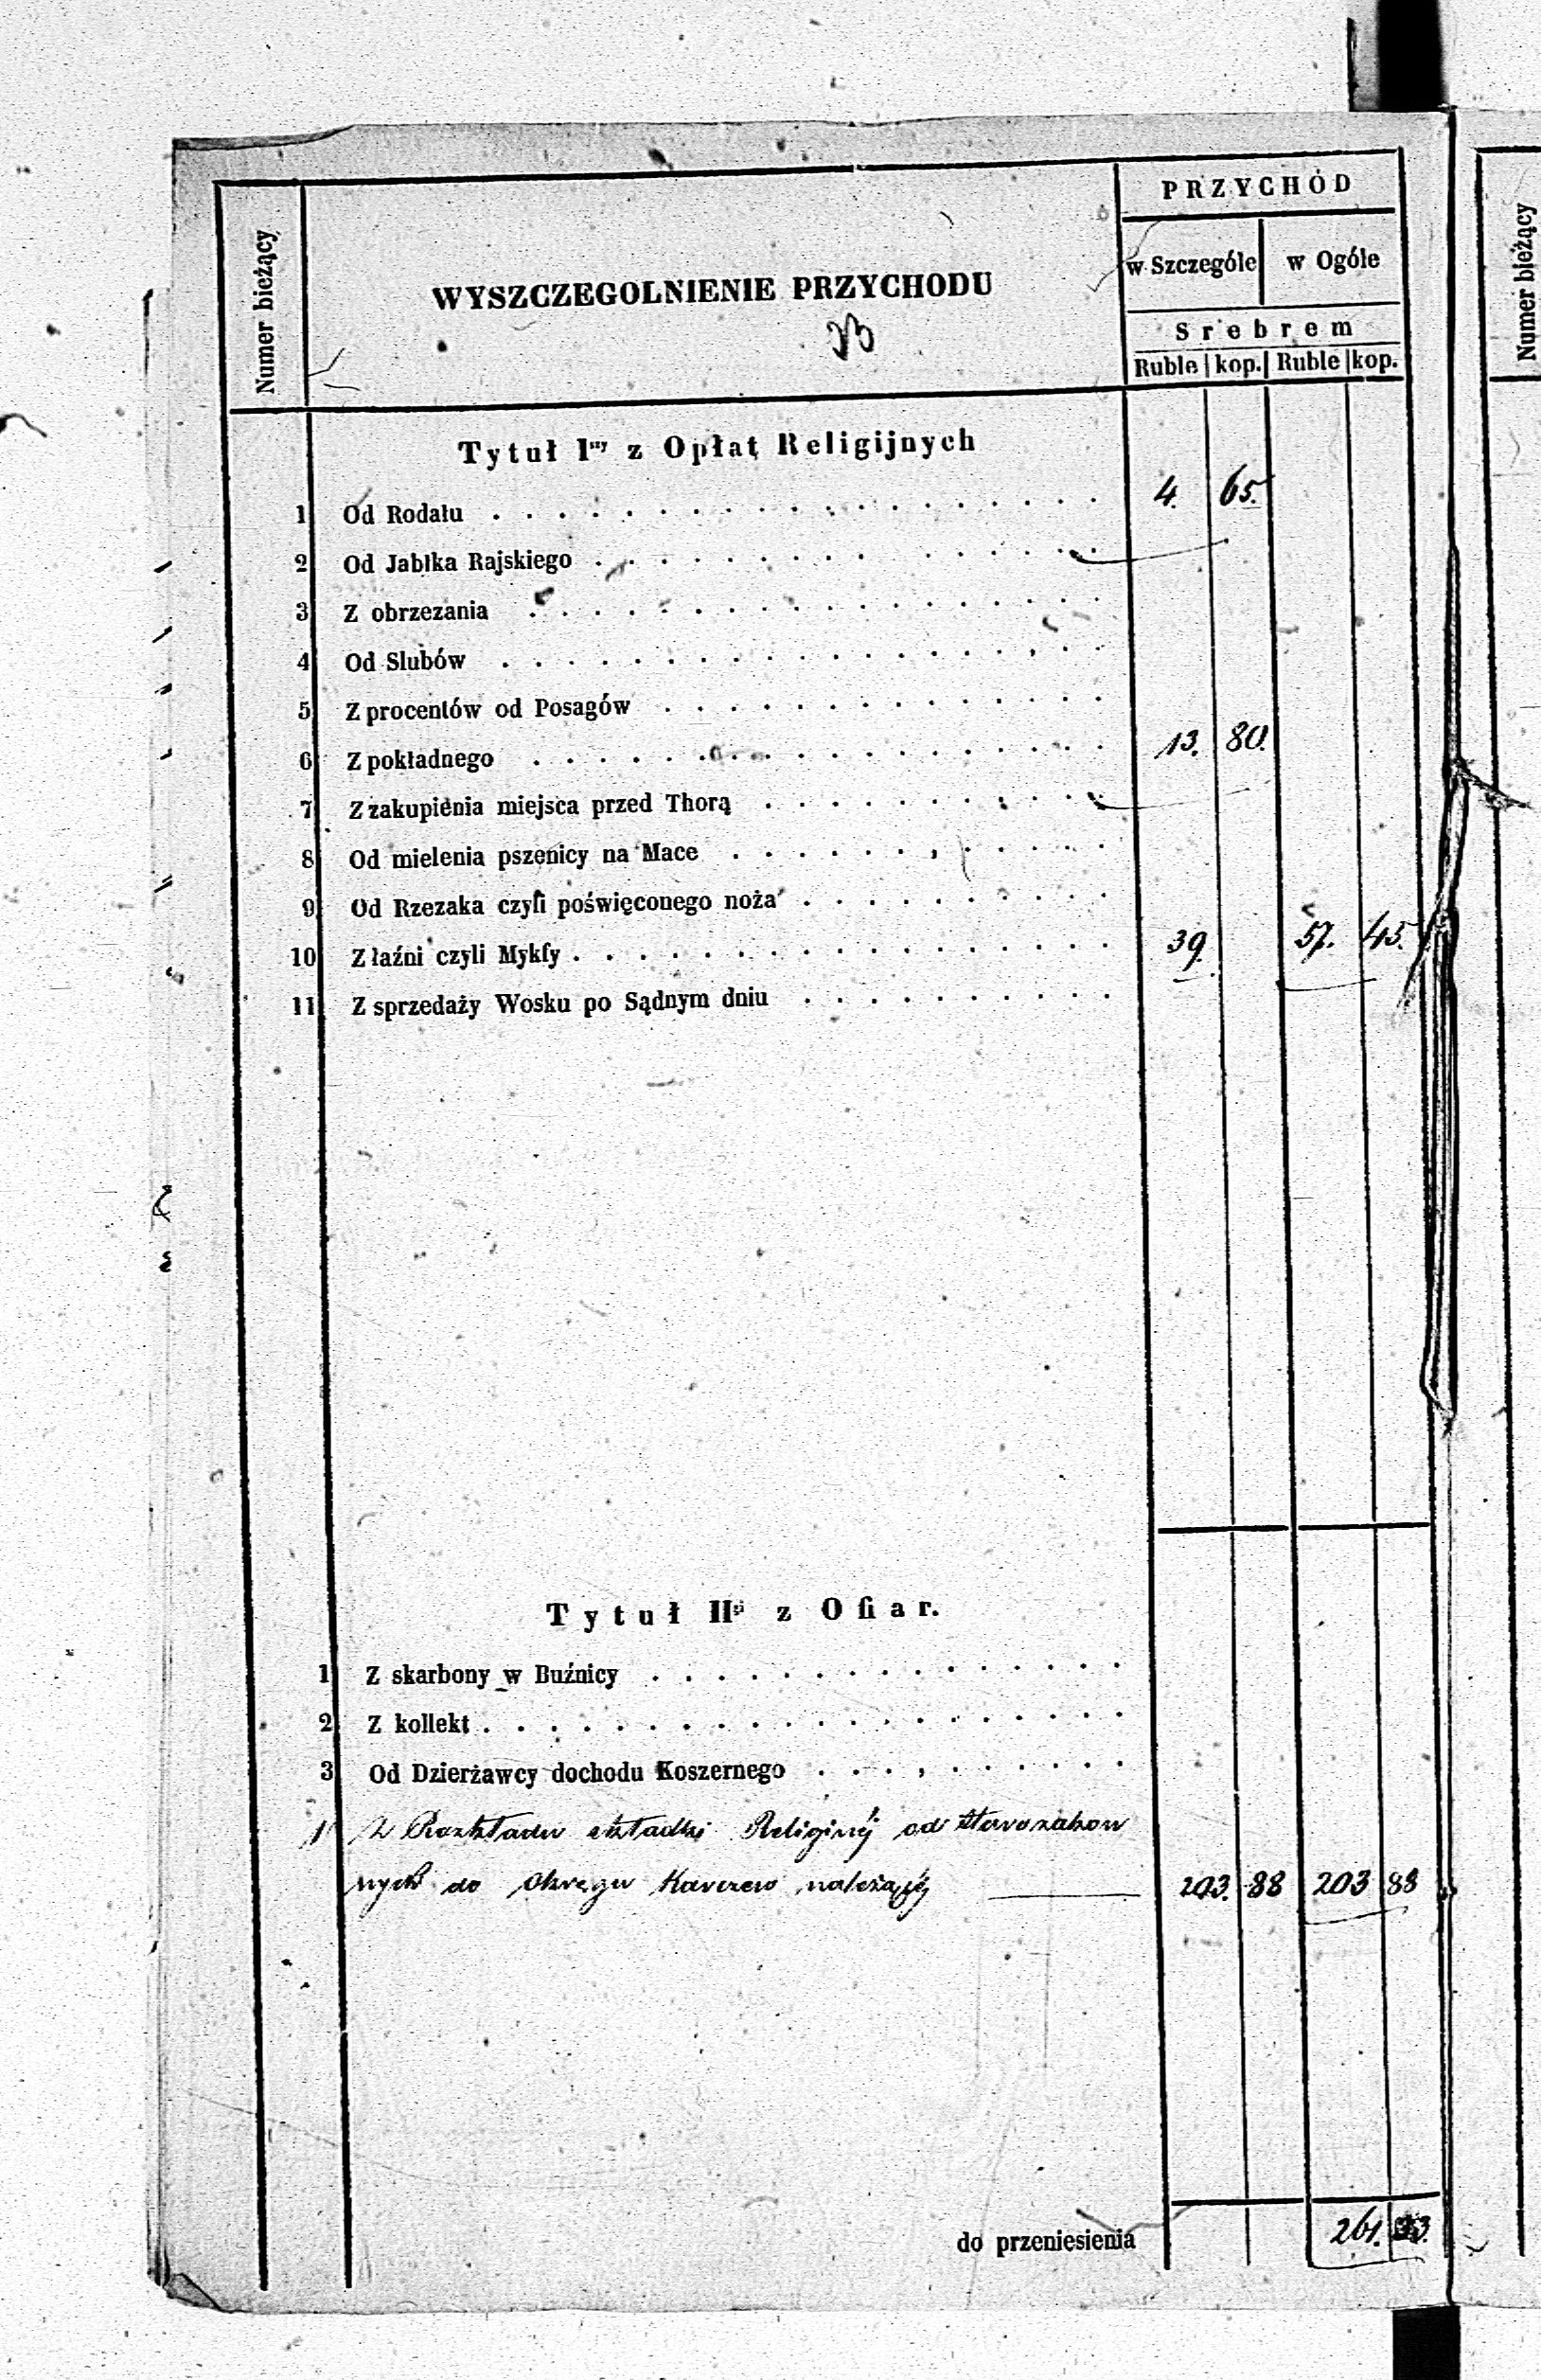 Numer bieżący
WYSZCZEGOLNIENIE PRZYCHODU
PRZYCHÓD
w Szczególe w Ogóle
Srebrem
Ruble kop. Ruble kop.
Tytuł Iszy z Opłat Religijnych
1 Od Rodału 4. 65.
2 Od Jabłka Rajskiego
3 Z obrzezania
4 Od Slubów
5 Z procentów od Posagów
6 Z pokładnego 13. 80.
7 Z zakupienia miejsca przed Thorą
8 Od mielenia pszenicy na Mace
9 Od Rzezaka czyli poświęconego noża
10 Z łaźni czyli Mykfy 39. 57. 45.
11 Z sprzedaży Wosku po Sądnym dniu
Tytuł IIgi z Ofiar.
1 Z skarbony w Buźnicy
2 Z kollekt
3 Od Dzierżawcy dochodu Koszernego
1 Z Rozkładu składki Religinéj od Starozakon
nych do Okręgu Karczew należącéj 203. 88 203 88
do przeniesienia 261. 33.
Numer bieżący